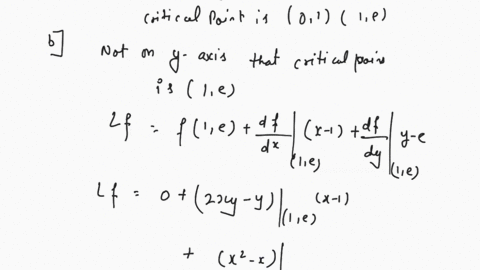 critical Point is (0,1) (1,e)
b] Not on y-axis that critical point
is (1,e)
Lf = f(1,e) + df/dx |(1,e) (x-1) + df/dy | y-e (1,e)
Lf = 0 + (2xy-y)|(1,e) (x-1)
+ (x²-x)|